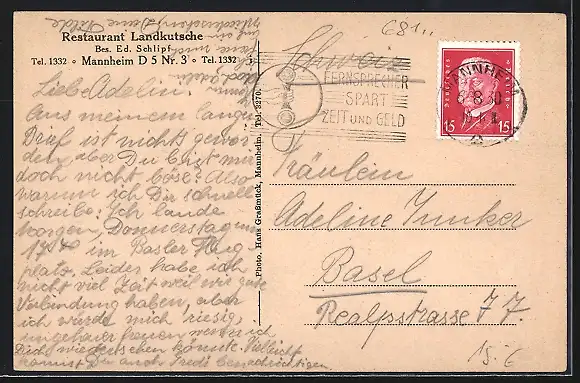 Restaurant Landkutsche
Bes. Ed. Schlipf
Tel. 1332 • Mannheim D 5 Nr. 3 • Tel. 1332
Liebe Adelin!
Aus meinem langen
Brief ist nichts gewor
den, aber Du bist mir
doch nicht böse? Also
warum ich Dir schnell
schreibe: Ich lande
morgen, Donnerstag um
17 40 im Basler Flug
platz. Leider habe ich
nicht viel Zeit weil wir gute
Verbindung haben, aber
ich würde mich riesig,
ungeheuer freuen wenn ich
Dich wiedersehen könnte. Vielleicht
kannst Du auch Fredi benachrichtigen.
Photo. Hans Graßmück, Mannheim. Tel. 3270.
681
Schweiz
FERNSPRECHER
SPART
ZEIT UND GELD
MANNHEIM
8.30
DEUTSCHES REICH
15 15
Fräulein
Adeline Junker
Basel
Realpstrasse 77.
15.6